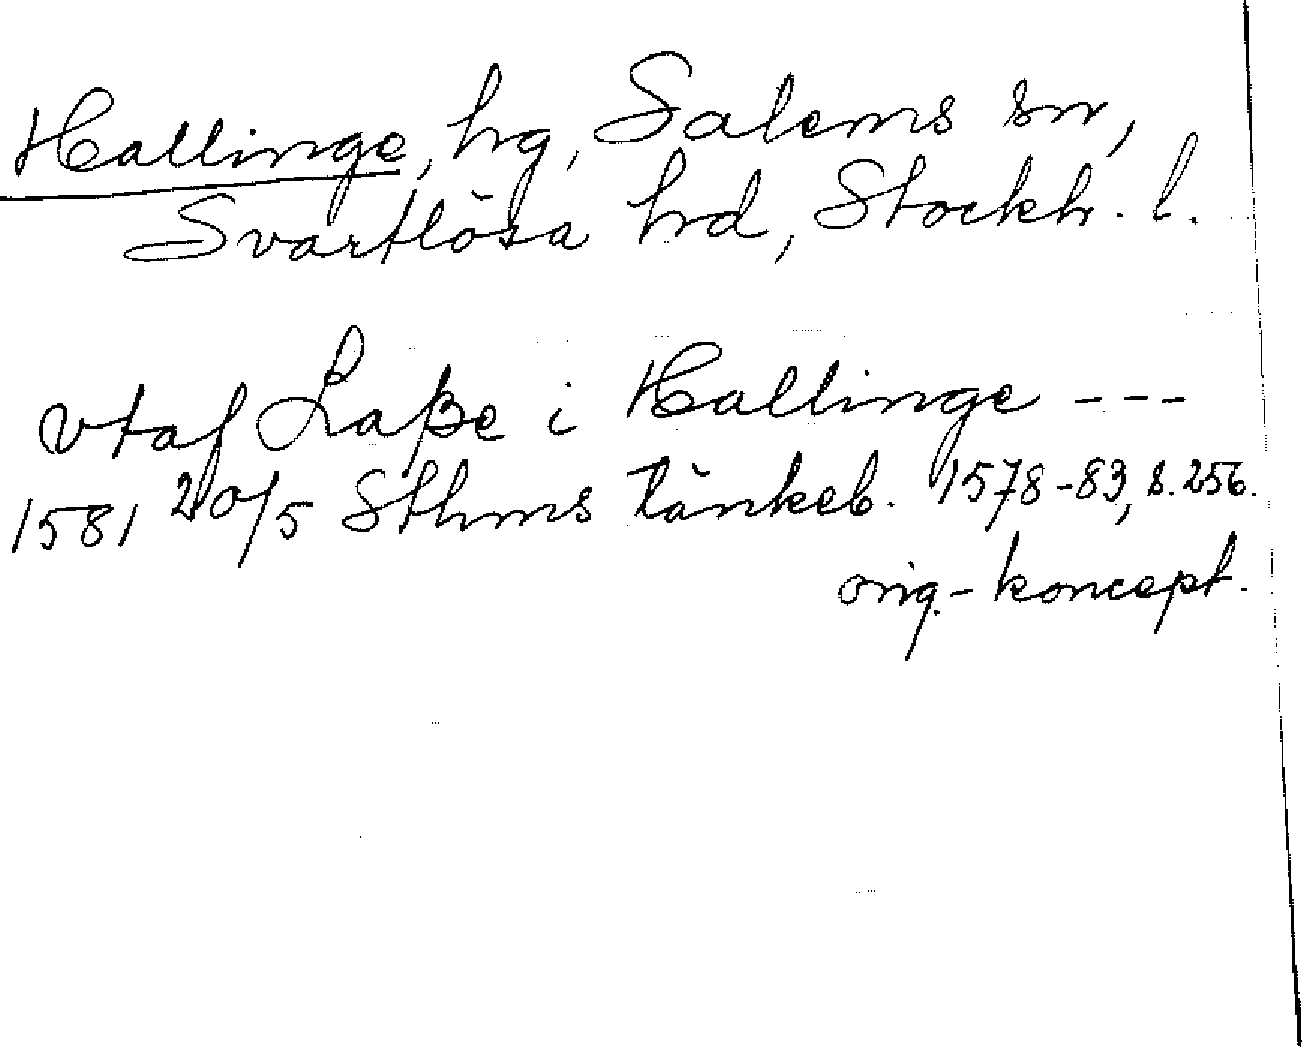 Hallinge, hg, Salems sn,
Svartlösa hrd, Stockh. l.
vtaf Laße i Hallinge ---
1581 20/5 Sthms tänkeb. 1578-83, s. 256.
orig.-koncept.